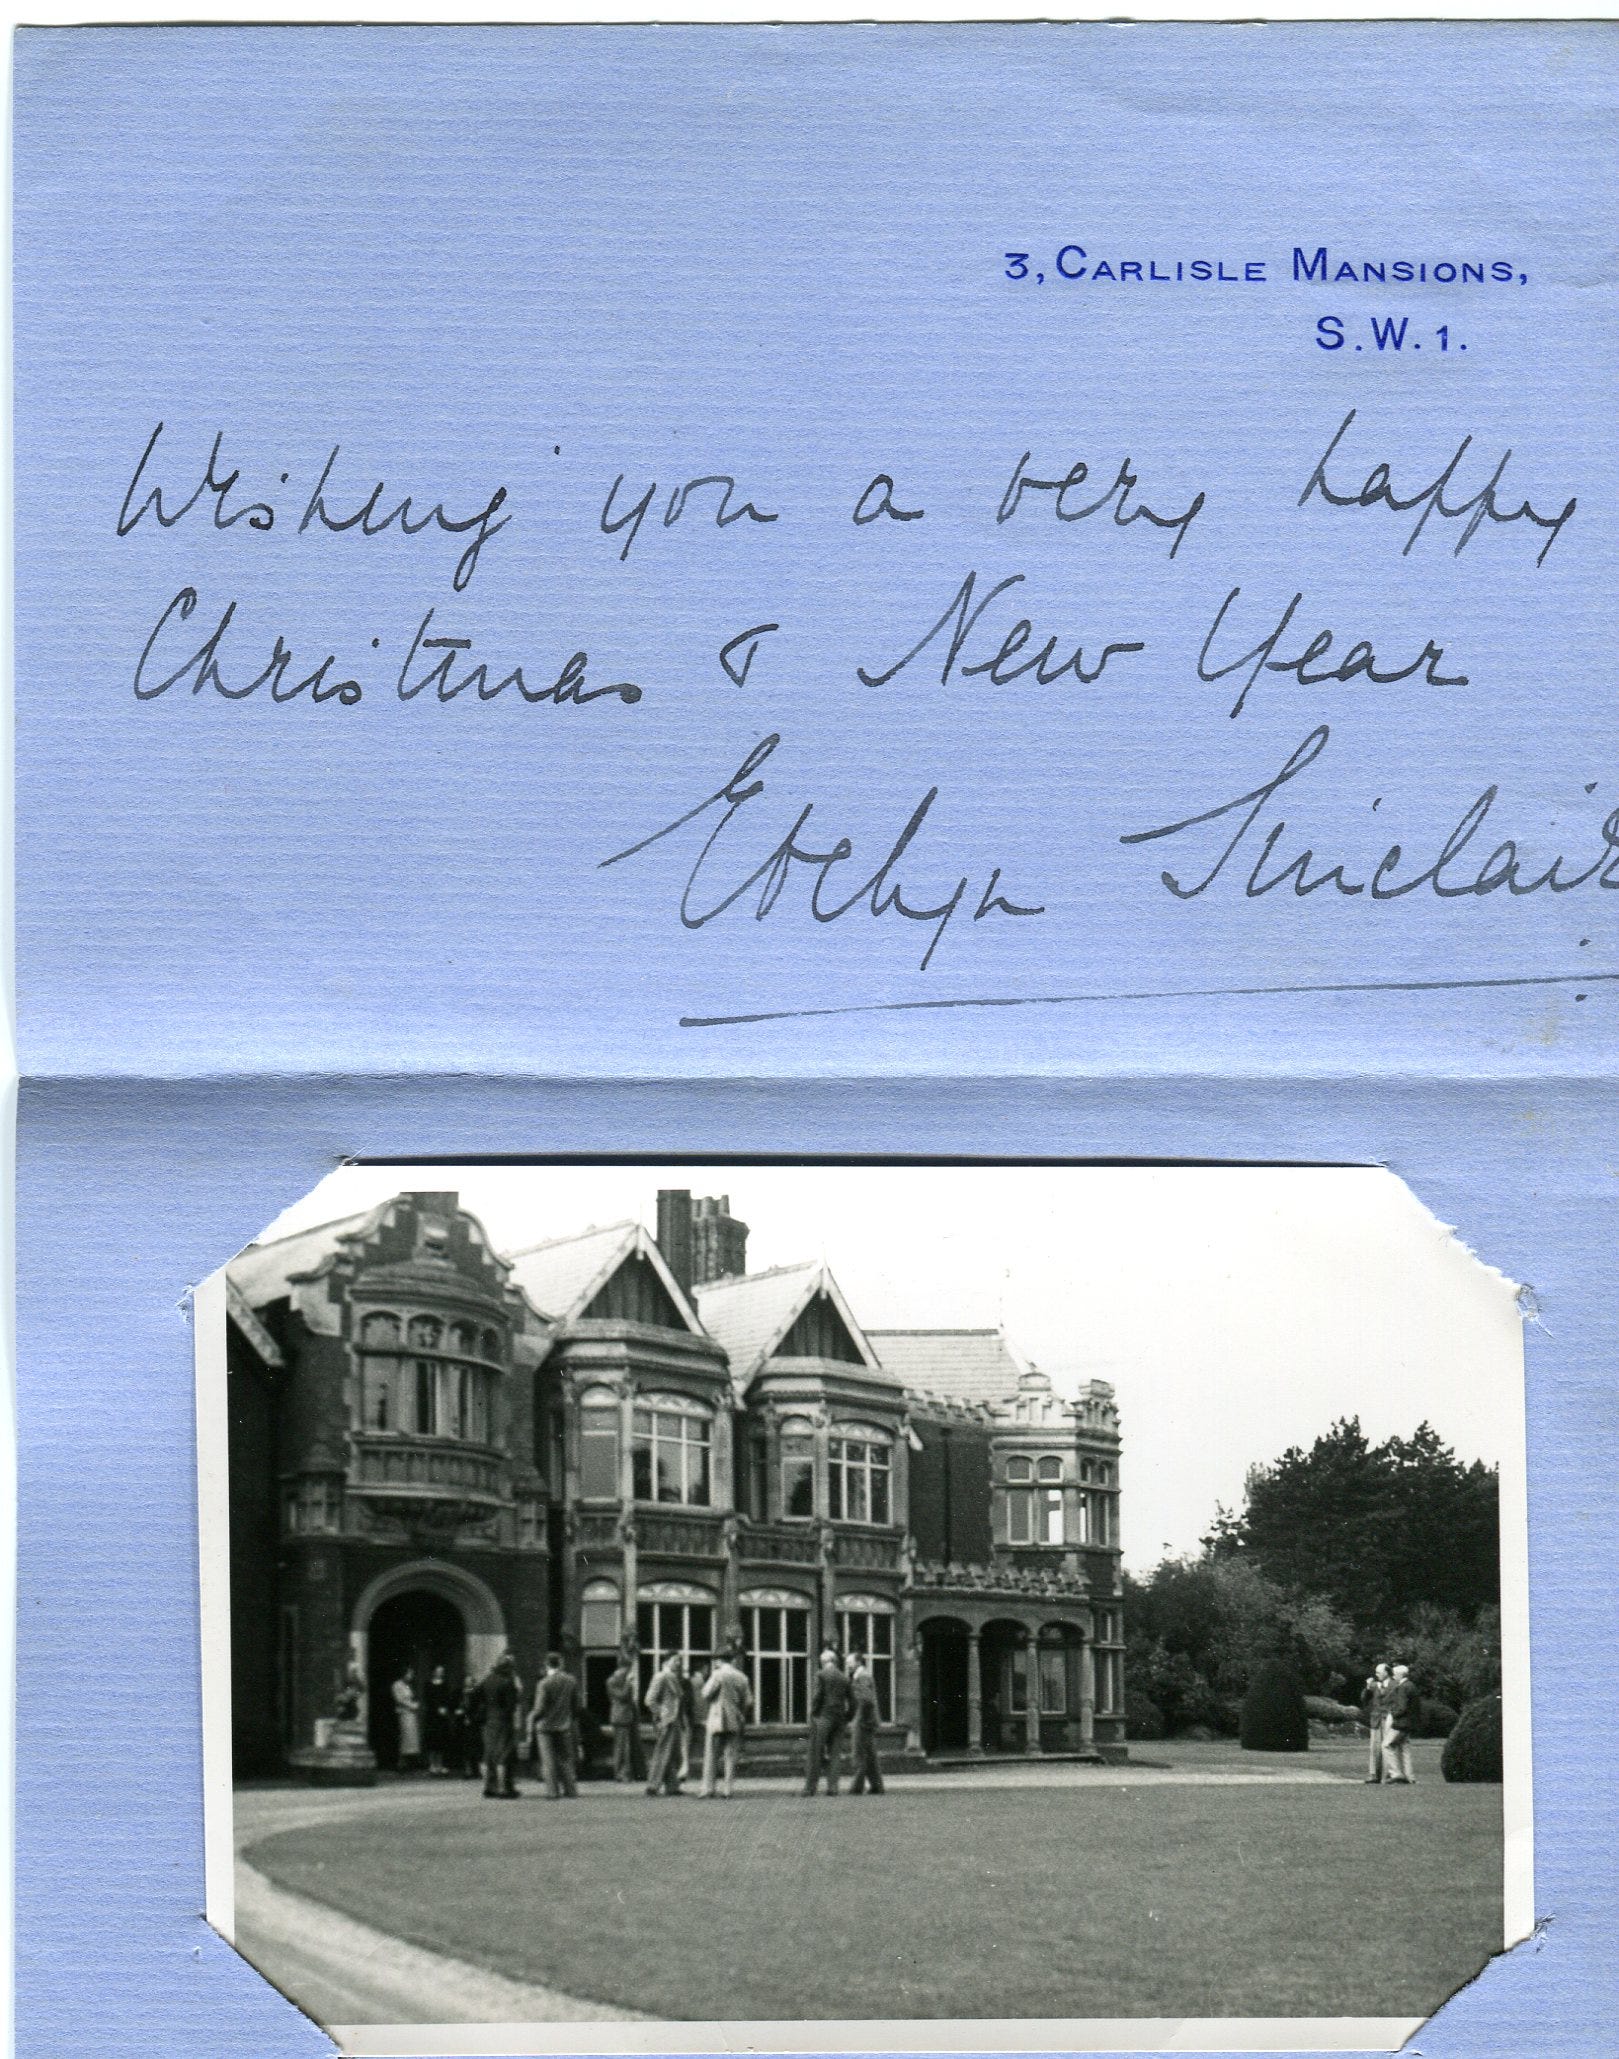 3, CARLISLE MANSIONS,
S.W.1.
Wishing you a very happy
Christmas & New Year
Evelyn Sinclair